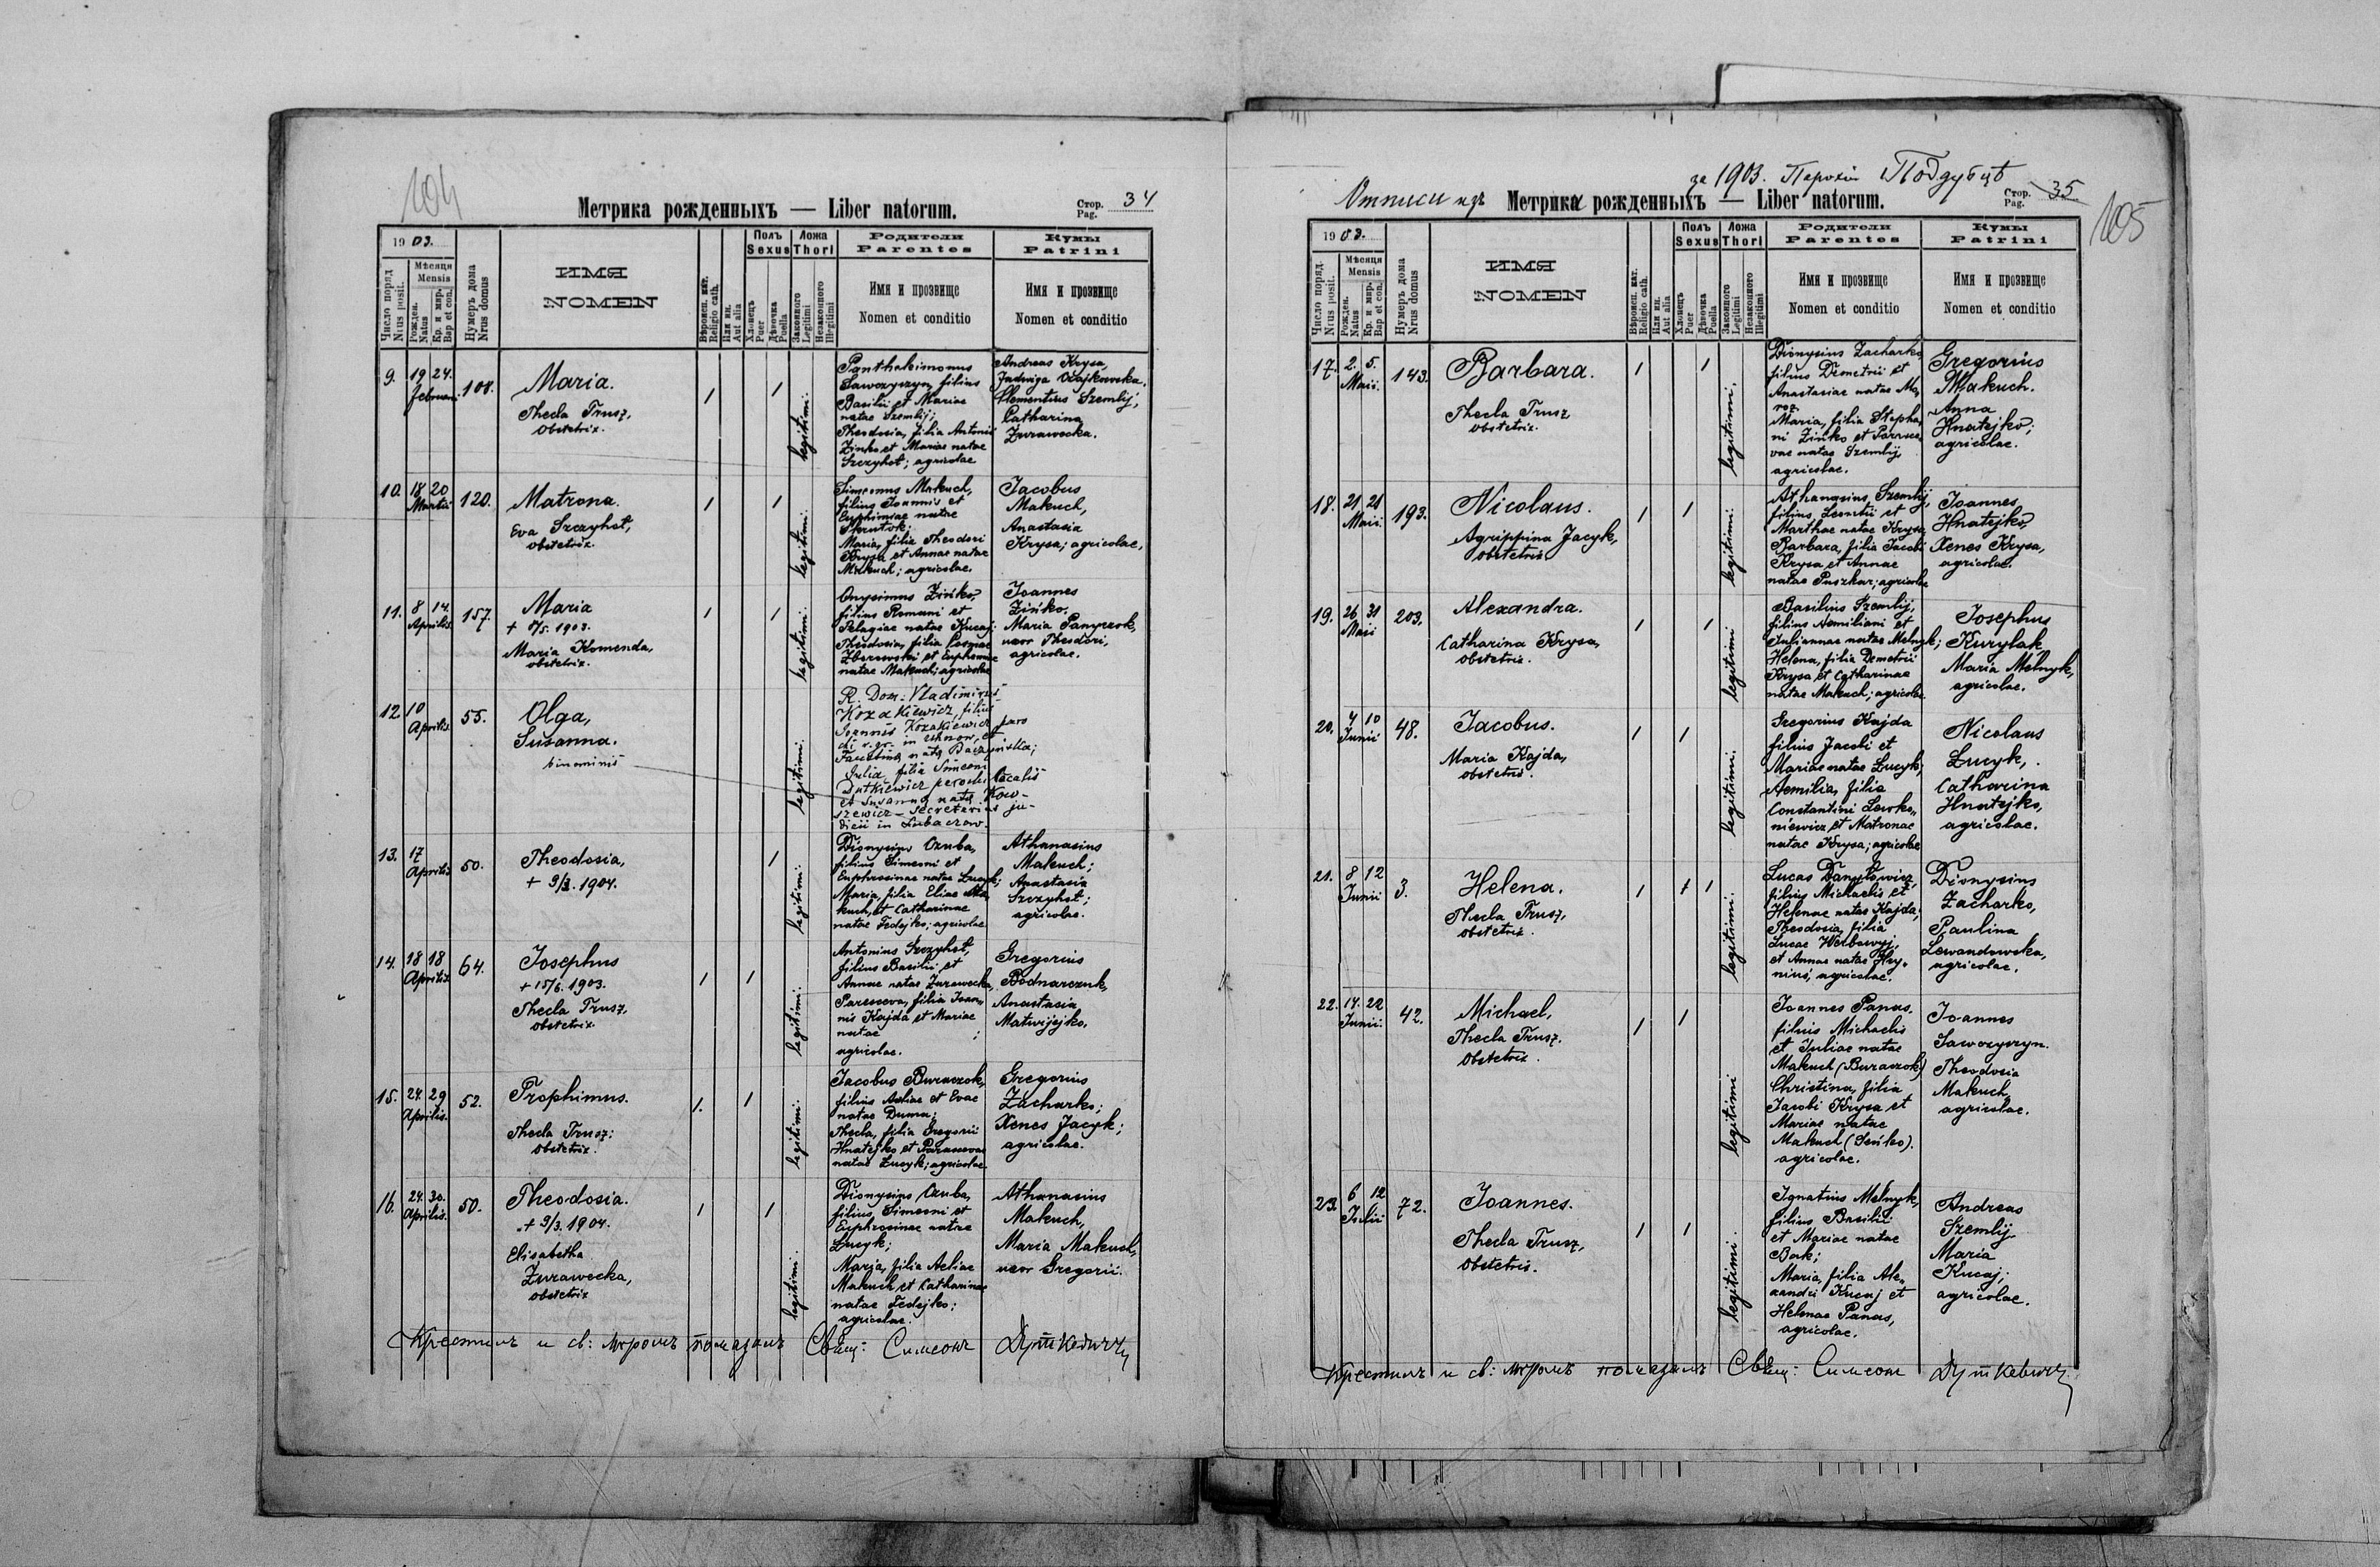 104
Метрика рожденныхъ — Liber natorum.
Стор. 34
Pag.
1903.
Число поряд.
Nrus posit.
Мѣсяця
Mensis
Рожден.
Natus
Кр. и мир.
Bap et con.
Нумеръ дома
Nrus domus
ИМЯ
NOMEN
Вѣроисп. кат.
Religio cath.
Или ин.
Aut alia
Полъ
Sexus
Хлопецъ
Puer
Дѣвочка
Puella
Ложа
Thori
Законного
Legitimi
Незаконного
Illegitimi
Родители
Parentes
Имя и прозвище
Nomen et conditio
Кумы
Patrini
Имя и прозвище
Nomen et conditio
9.
19 24.
Februarii
108.
Maria.
Thecla Trusz,
obstetrix.
legitimi.
Sawczyszyn, filius
Basilii et Mariae
natae Szemlij;
Theodosia, filia Antonii
Zinko et Mariae natae
Szczyhot; agricolae
Andreas Krysa
Jadwiga
Clementius Szemlij,
Catharina
Zurawecka.
10.
18 20
Martii
120.
Matrona.
Eva Szczyhot,
obstetrix.
legitimi.
Simeonus Makuch,
filius Joannis et
Euphimiae natae
Maria, filia Theodori
Krysa et Annae natae
Makuch; agricolae.
Jacobus
Makuch,
Anastasia
Krysa; agricolae.
11.
8 14.
Aprilis
157.
Maria
1903.
Maria Komenda,
obstetrix.
legitimi.
Onysimus Zińko,
filius Romani et
Pelagiae natae Kucaj;
Theodosia, filia Cosmae
et Euphemiae
natae Makuch; agricolae
Joannes
Zińko.
Maria
uxor Theodori,
agricolae.
12
10
Aprilis
55.
Olga,
Susanna.
binominis
legitimi.
R. Dom. Vladimirus
Kozakiewicz, filius
Joannis Kozakiewicz
et
Faustina nata
Julia filia Simeoni
Dutkiewicz parochi localis
et Susanna nata Kow-
szewicz – Secretarius ju-
dicii in Lubaczow.
13.
17
Aprilis
50.
Theodosia,
+ 9/3. 1904.
legitimi.
Dionysius Czuba,
filius Simeoni et
Euphrosinae natae Lucyk;
Maria, filia Eliae Ma-
kuch, et Catharinae
natae Fedejko; agricolae
Athanasius
Makuch;
Anastasia
Szczyhot;
agricolae.
14.
18 18
Aprilis
64.
Josephus
+ 15/6. 1903.
Thecla Trusz,
obstetrix.
legitimi.
Antonius Szczyhot,
filius Basilii et
Annae natae Zurawecka,
Parasceva, filia Joan-
nis Kajda et Mariae
natae ;
agricolae.
Gregorius
Bodnarczuk,
Anastasia
Matwijejko.
15.
24. 29
Aprilis.
52.
Trophimus.
Thecla Trusz:
obstetrix.
legitimi.
Jacobus Buraczok,
filius Aeliae et Evae
natae Duma;
Thecla, filia Gregorii
Hnatejko et Parascevae
natae Lucyk; agricolae
Gregorius
Zacharko;
Xenes Jacyk;
agricolae.
16.
24. 30.
Aprilis.
50.
Theodosia.
+ 9/3. 1904.
Elisabetha
Zurawecka,
obstetrix
legitimi.
Dionysius Czuba,
filius Simeoni et
Euphrosinae natae
Lucyk;
Maria, filia Aeliae
Makuch et Catharinae
natae Fedejko;
agricolae.
Athanasius
Makuch,
Maria Makuch,
uxor Gregorii.
Крестилъ и св: мѵромъ помазалъ Свящ: Симеонъ Дуткевичъ
105
за 1903. Парохіи Поддубцѣ
Отписи изъ Метрики рожденныхъ — Liber natorum.
Стор. 35
Pag.
1903.
Число поряд.
Nrus posit.
Мѣсяця
Mensis
Рожден.
Natus
Кр. и мир.
Bap et con.
Нумеръ дома
Nrus domus
ИМЯ
NOMEN
Вѣроисп. кат.
Religio cath.
Или ин.
Aut alia
Полъ
Sexus
Хлопецъ
Puer
Дѣвочка
Puella
Ложа
Thori
Законного
Legitimi
Незаконного
Illegitimi
Родители
Parentes
Имя и прозвище
Nomen et conditio
Кумы
Patrini
Имя и прозвище
Nomen et conditio
17.
2. 5.
Maii.
143.
Barbara.
Thecla Trusz
obstetrix.
legitimi.
Dionysius Zacharko,
filius Demetrii et
Anastasiae natae Ma-
roz.
Maria, filia Stepha-
ni Zińko et Parasce-
vae natae Szemlij,
agricolae.
Gregorius
Makuch.
Anna
Hnatejko;
agricolae.
18.
21 21
Maii.
193.
Nicolaus.
Agrippina Jacyk,
obstetrix
legitimi.
Athanasius Szemlij,
filius Leontii et
Marthae natae Krysa,
Barbara, filia Jacobi
Krysa et Annae
natae Puszkar; agricolae
Joannes
Hnatejko,
Xenes Krysa,
agricolae.
19.
26 31
Maii
203.
Alexandra.
Catharina Krysa,
obstetrix.
legitimi
Basilius Szemlij,
filius Aemiliani et
Julianae natae Melnyk;
Helena, filia Demetrii
Krysa et Catharinae
natae Makuch; agricolae.
Josephus
Kurylak,
Maria Melnyk,
agricolae.
20.
4 10
Junii
48.
Jacobus.
Maria Kajda,
obstetrix.
legitimi.
Gregorius Kajda
filius Jacobi et
Mariae natae Lucyk;
Aemilia, filia
Constantini Lewko-
niewicz et Matronae
natae Krysa; agricolae
Nicolaus
Lucyk,
Catharina
Hnatejko,
agricolae.
21.
8 12
Junii
3.
Helena.
Thecla Trusz,
obstetrix.
legitimi.
Lucas Danyłowicz,
filius Michaelis et
Helenae natae Kajda;
Theodosia, filia
Lucae Werbowyj,
et Annae natae Hry-
niuś, agricolae.
Dionysius
Zacharko,
Paulina
Lewandowska,
agricolae.
22.
14. 22
Junii.
42.
Michael,
Thecla Trusz.
obstetrix.
legitimi
Joannes Panas.
filius Michaelis
et Juliae natae
Makuch (Buraczok)
Christina, filia
Jacobi Krysa et
Mariae natae
Makuch (Seńko).
agricolae.
Joannes
Sawczyszyn.
Theodosia
Makuch,
agricolae.
23.
6 12
Julii
72.
Joannes.
Thecla Trusz,
obstetrix.
legitimi.
Ignatius Melnyk,
filius Basilii
et Mariae natae
Bok;
Maria, filia Ale-
xandri Kucaj et
Helenae Panas,
agricolae.
Andreas
Szemlij.
Maria
Kucaj;
agricolae.
Крестилъ и св: мѵромъ помазалъ Свящ: Симеон Дуткевичъ